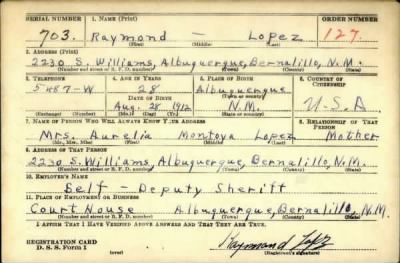 SERIAL NUMBER 1. NAME (Print) ORDER NUMBER
703. Raymond — Lopez 127.
(First) (Middle) (Last)
2. ADDRESS (Print)
2230 S. Williams, Albuquerque, Bernalillo, N.M.
(Number and street or R. F. D. number) (Town) (County) (State)
3. TELEPHONE 4. AGE IN YEARS 5. PLACE OF BIRTH 6. COUNTRY OF CITIZENSHIP
5487-W 28 Albuquerque
DATE OF BIRTH (Town or county)
Aug. 28 1912 N.M. U.S.A
(Mo.) (Day) (Yr.) (State or country)
7. NAME OF PERSON WHO WILL ALWAYS KNOW YOUR ADDRESS 8. RELATIONSHIP OF THAT PERSON
Mrs. Aurelia Montoya Lopez Mother
(Mr., Mrs., Miss) (First) (Middle) (Last)
9. ADDRESS OF THAT PERSON
2230 S. Williams, Albuquerque, Bernalillo, N.M.
(Number and street or R. F. D. number) (Town) (County) (State)
10. EMPLOYER'S NAME
Self - Deputy Sheriff
11. PLACE OF EMPLOYMENT OR BUSINESS
Court House Albuquerque, Bernalillo, N.M.
(Number and street or R. F. D. number) (Town) (County) (State)
I AFFIRM THAT I HAVE VERIFIED ABOVE ANSWERS AND THAT THEY ARE TRUE.
REGISTRATION CARD Raymond Lopez
D. S. S. Form 1 (Registrant's signature)